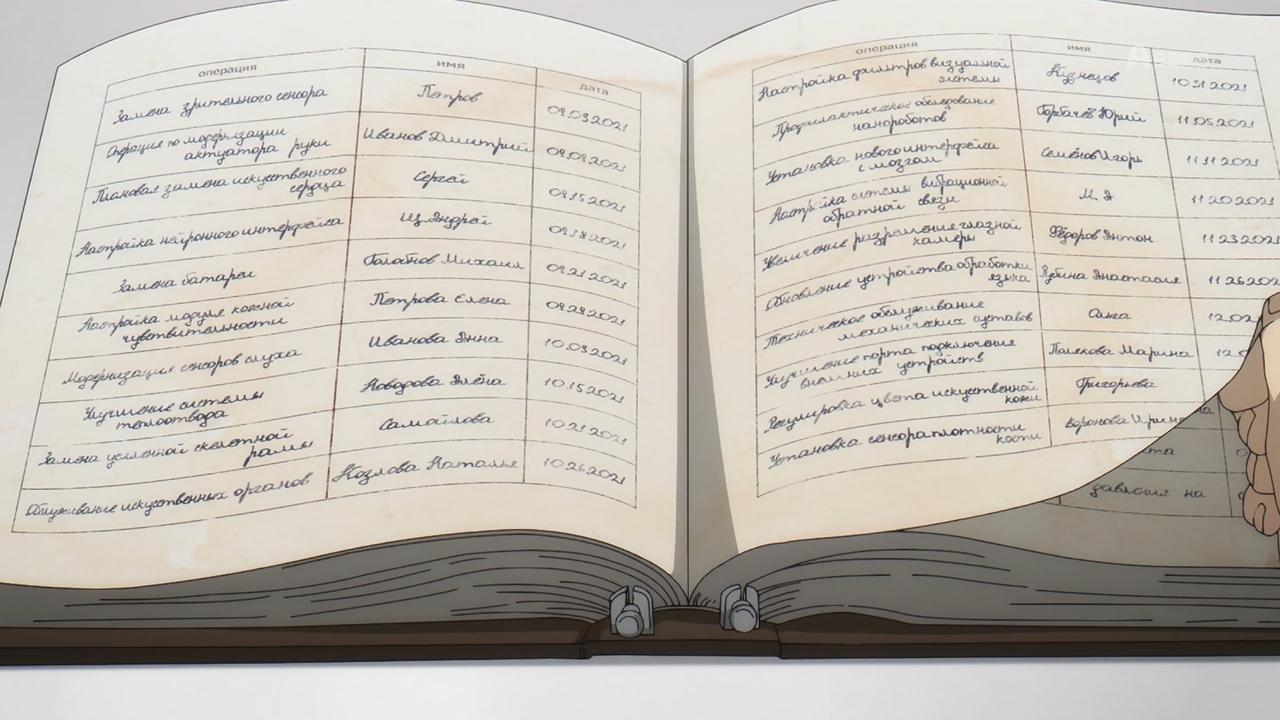 операция имя дата
Замена зрительного сенсора Петров 09.03.2021
Операция по модернизации
актуатора руки Иванов Дмитрий 09.09.2021
Плановая замена искусственного
сердца Сергей 09.15.2021
Настройка нейронного интерфейса Андрей 09.18.2021
Замена батареи Михаил 09.21.2021
Настройка модуля кожной
чувствительности Петрова Елена 09.29.2021
Модернизация сенсоров слуха Иванова Анна 10.03.2021
Улучшение системы
теплоотвода Алёна 10.15.2021
Замена усиленной скелетной
рамы Самойлова 10.21.2021
Обслуживание искусственных органов Козлова Наталье 10.26.2021
операция имя дата
Настройка фильтров визуальной
системы Кузнецов 10.31.2021
Профилактическое обследование
нанороботов Горбачёв Юрий 11.05.2021
Установка нового интерфейса
с мозгом Семёнов Игорь 11.11.2021
Настройка системы вибрационной
обратной связи М. Д 11.20.2021
Увеличение разрешения глазной
камеры Фёдоров Антон 11.23.2021
Обновление устройства обработки
языка Анастасия 11.26.202
Техническое обслуживание
механических суставов Ольга 12.02
Улучшение порта подключения
внешних устройств Марина 12.0
Регулировка цвета искусственной
кожи Григорьева
Установка сенсора плотности
кости Воронова
давление на